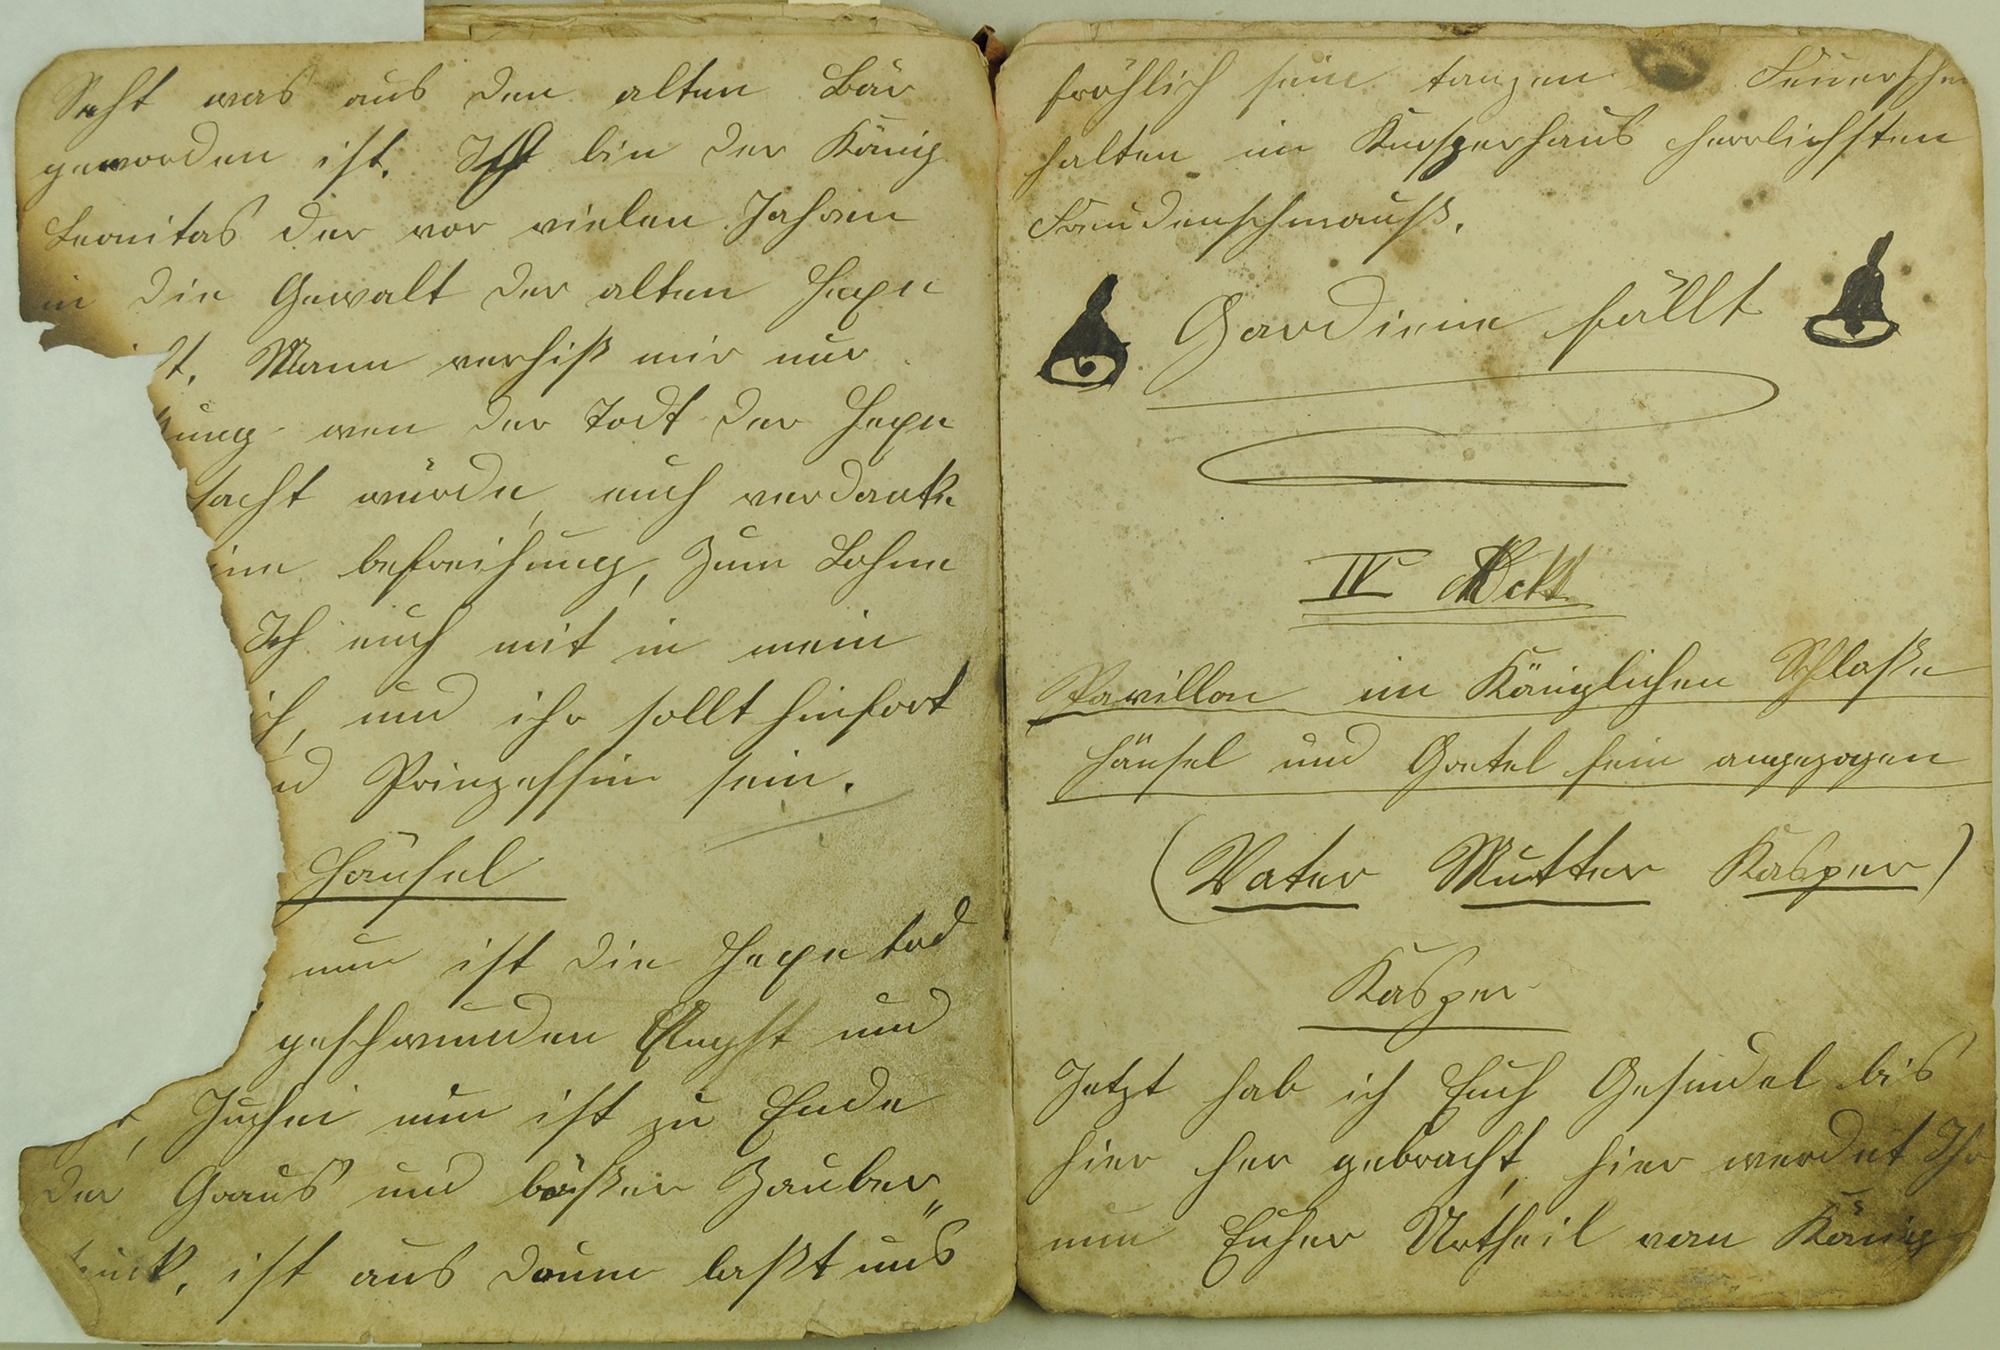 Seht was aus den alten Bär
geworden ist. Ich bin der König
Leonitas der vor vielen Jahren
in die Gewalt der alten Hexe
t. Mann verhiß mir nur
ung wen der Todt der Hexe
acht würde, euch verdanke
ine befreihung, Zum Lohne
Ich euch mit in mein
ich, und ihr sollt hinfort
nd Prinzessin sein.
Hänsel
nun ist die Hexe tod
geschwunden Angst und
Juchei nun ist zu Ende
der Graus und bößer Zauber„
ist aus drum laßt uns
fröhlich sein tanzen Feuerschei
halten im Knusperhaus herrlichsten
Freudenschmauß.
Gardiene fällt
IV Ackt
Pavillon im Königlichen Schloße
Hänsel und Gretel fein angezogen
(Vater Mutter Kasper)
Kasper
Jetzt hab ich Euch Gesindel bis
hier her gebracht, hier werdet Ihr
nun Euher Urtheil von König